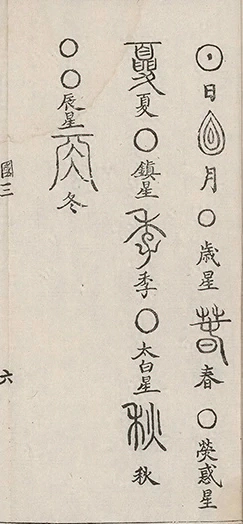 日 月 ○ 歳星 春 ○ 熒惑星
夏 ○ 鎮星 季 ○ 太白星 秋
○ ○ 辰星 冬
國三 六